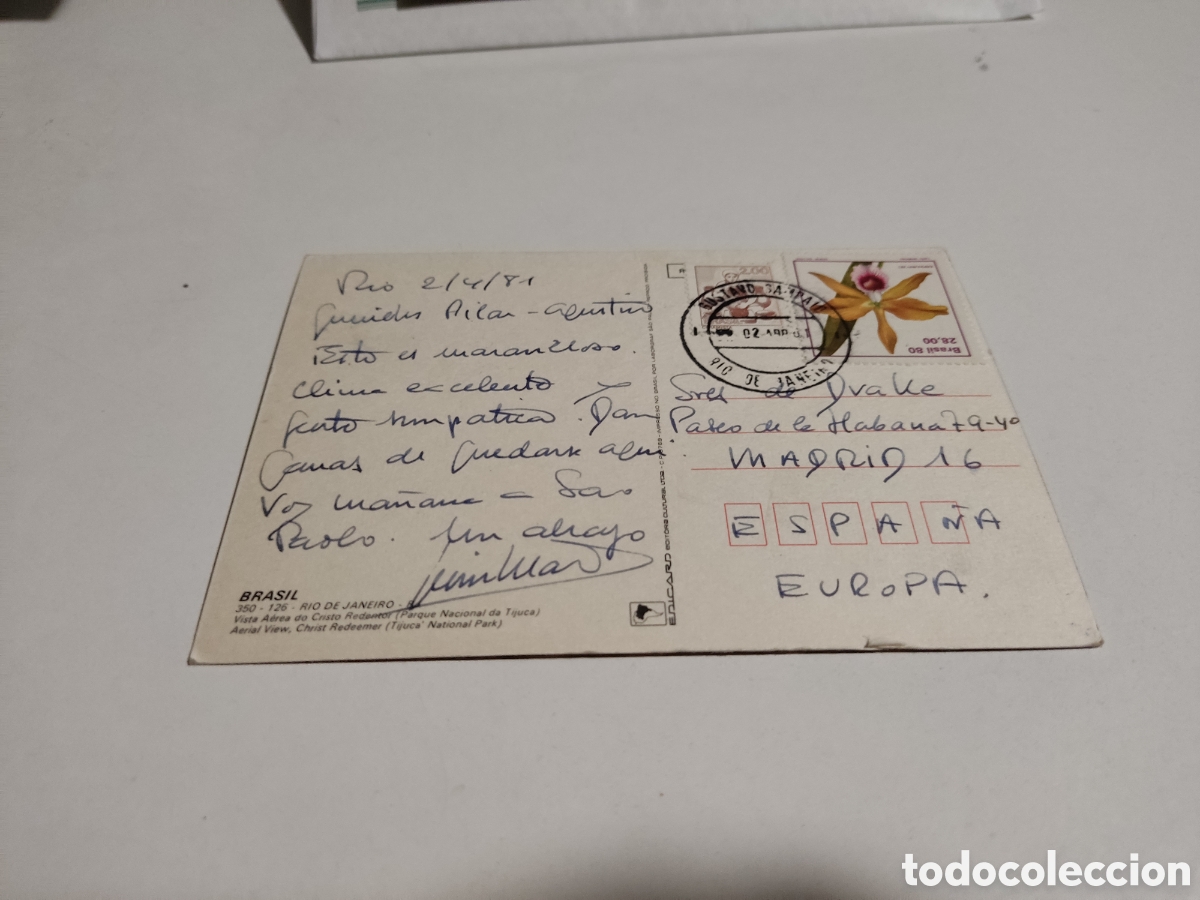 Rio 2/4/81
Queridos Pilar - Agustin
¡Esto es maravilloso.
Clima excelente
gente simpática. Dan
ganas de quedarse aquí.
Voy mañana a Sao
Paolo. Un abrazo
BRASIL
350 - 126 - RIO DE JANEIRO -
Vista Aérea do Cristo Redentor (Parque Nacional da Tijuca)
Aerial View, Christ Redeemer (Tijuca National Park)
EDICARD EDITORA CULTURAL LTDA
2,00
GUSTAVO SAMPAIO
02 ABR 81
RIO DE JANEIRO
Brasil 80
28,00
Sres de Drake
Paseo de la Habana 79-4º
MADRID 16
ESPAÑA
EUROPA.
todocoleccion